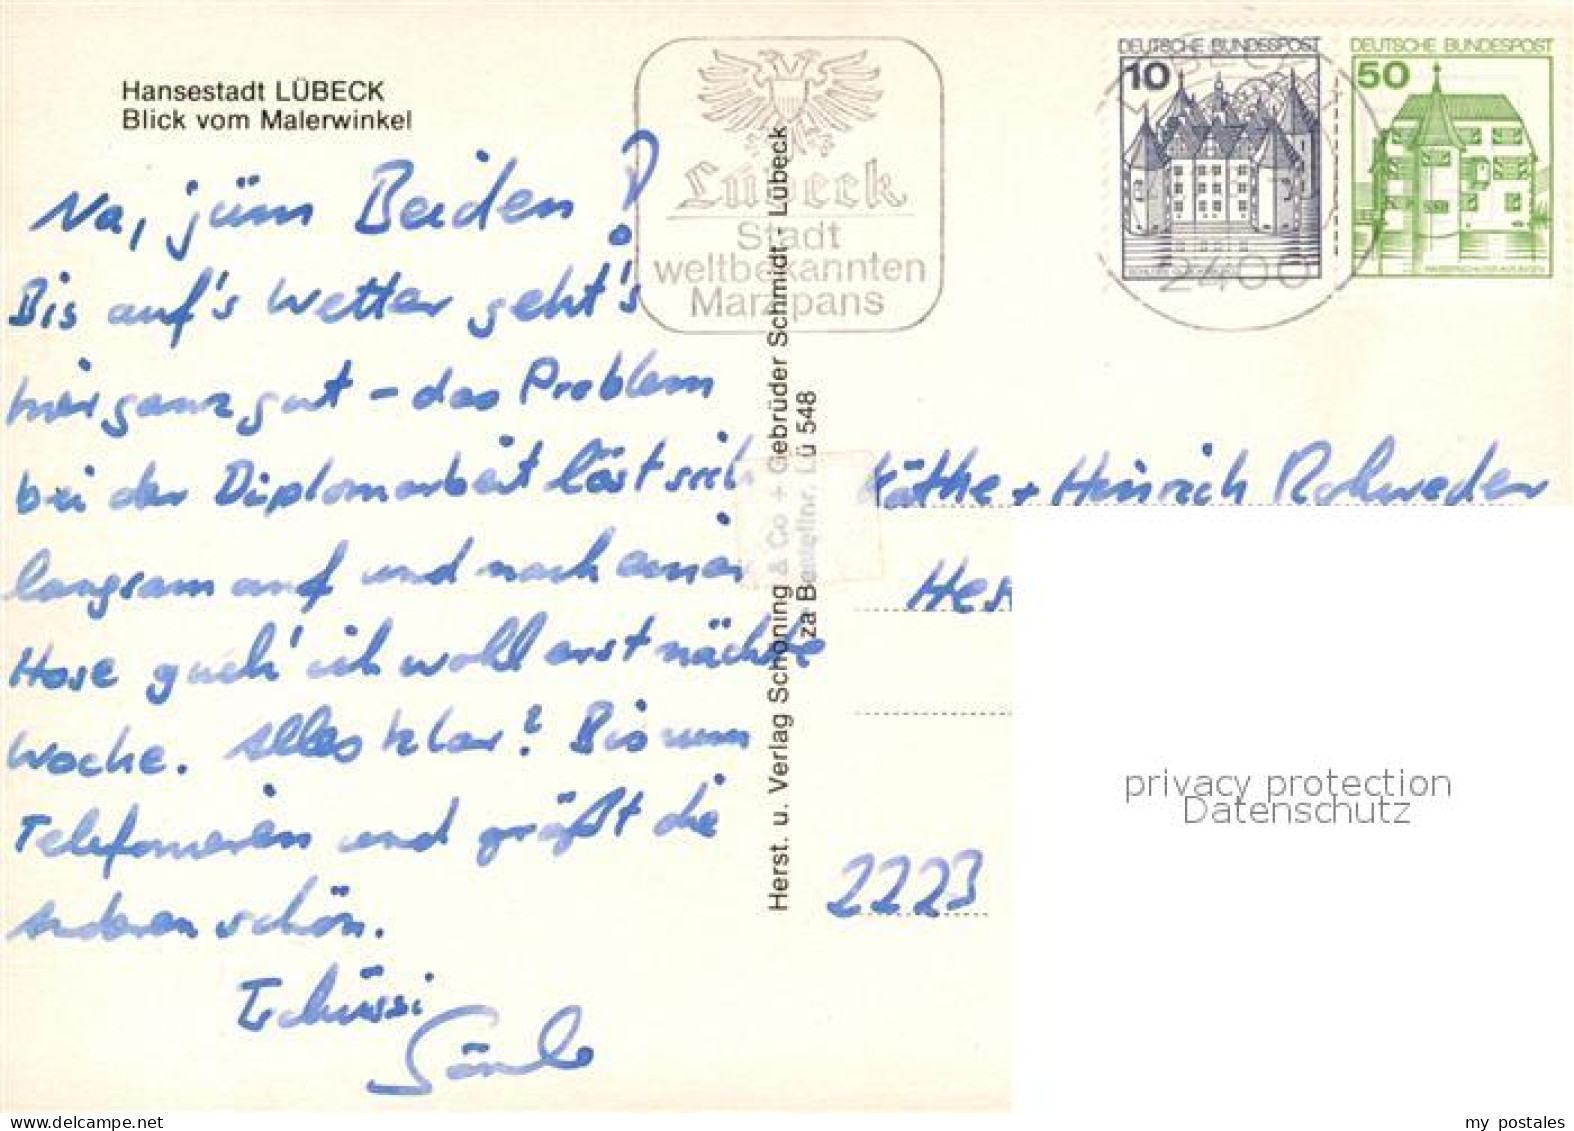 Hansestadt LÜBECK
Blick vom Malerwinkel
Na, jüm Beiden!
Bis auf's Wetter geht's
hier ganz gut - das Problem
bei der Diplomarbeit löst sich
langsam auf und nach einer
Hose guck' ich wohl erst nächste
Woche. Alles klar? Bis zum
Telefonieren und grüßt die
anderen schön.
Tschüssi
Lübeck
Stadt
weltbekannten
Marzipans
Herst. u. Verlag Schöning & Co + Gebrüder Schmidt - Lübeck
za Bestellnr. Lü 548
DEUTSCHE BUNDESPOST
10
DEUTSCHE BUNDESPOST
50
2400
Käthe + Heinrich Rohweder
2223
privacy protection
Datenschutz
my postales